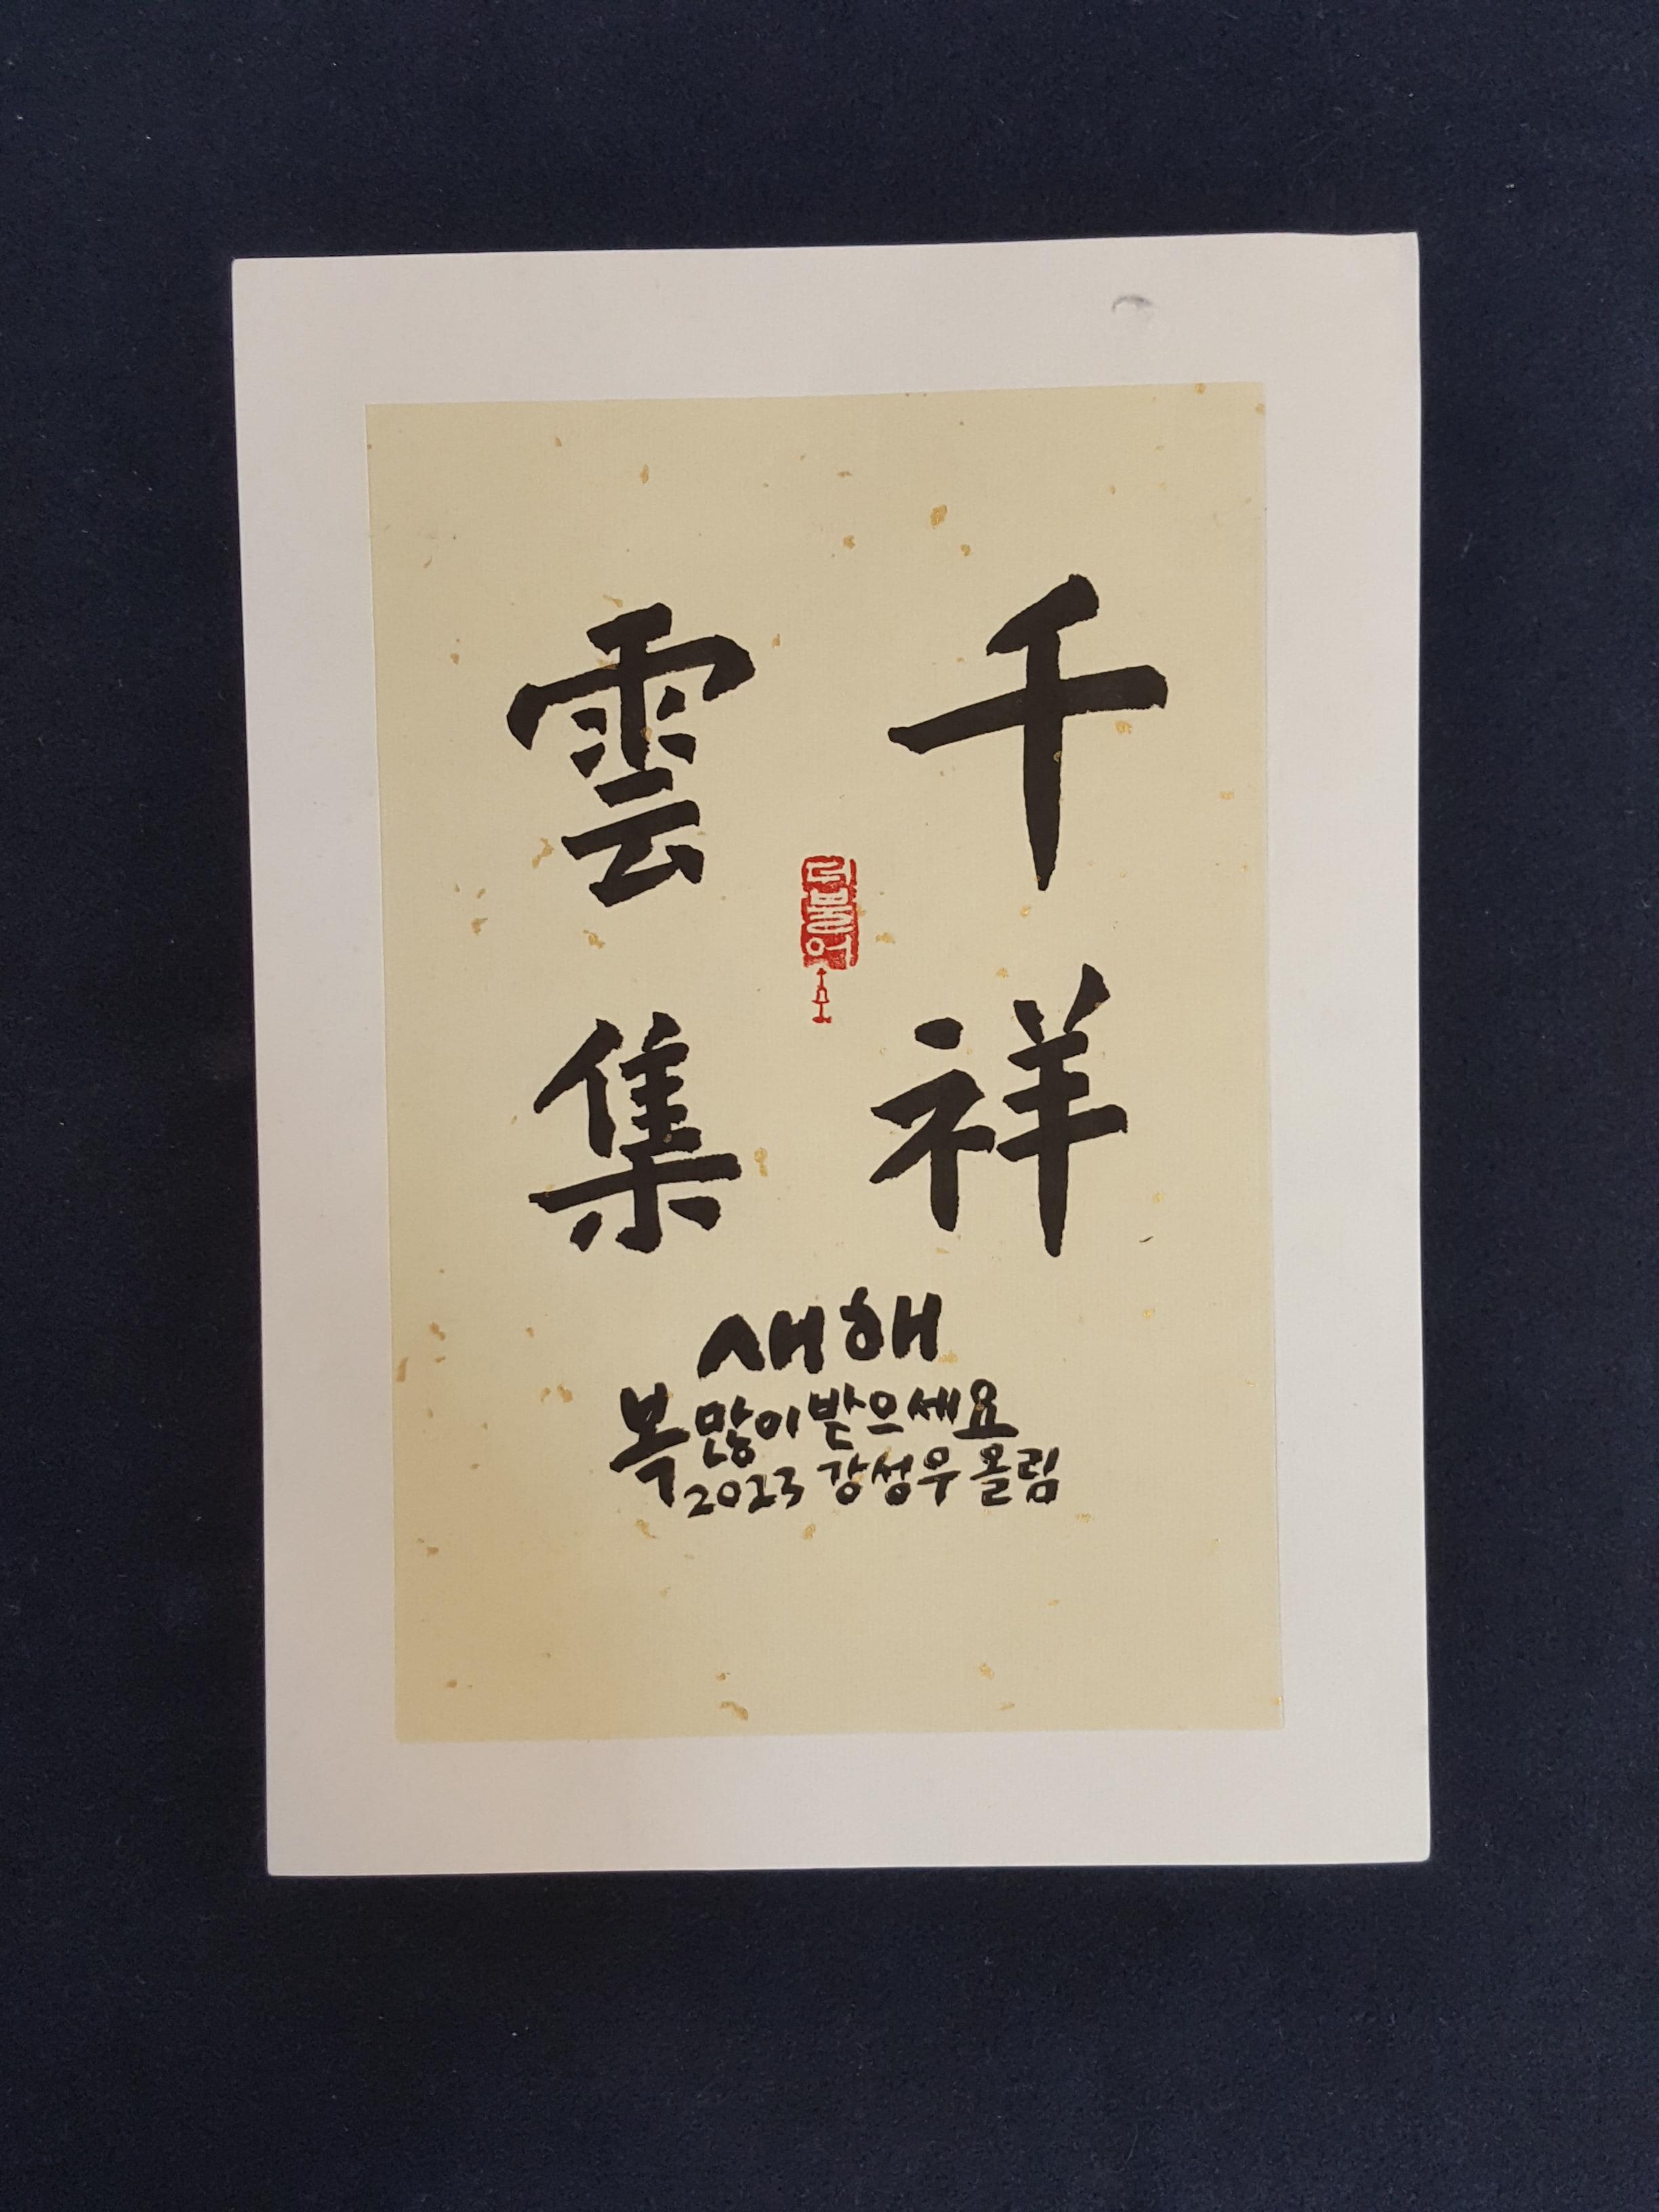 千祥
雲集
더불어
새해
복 많이 받으세요
2023 강성우 올림